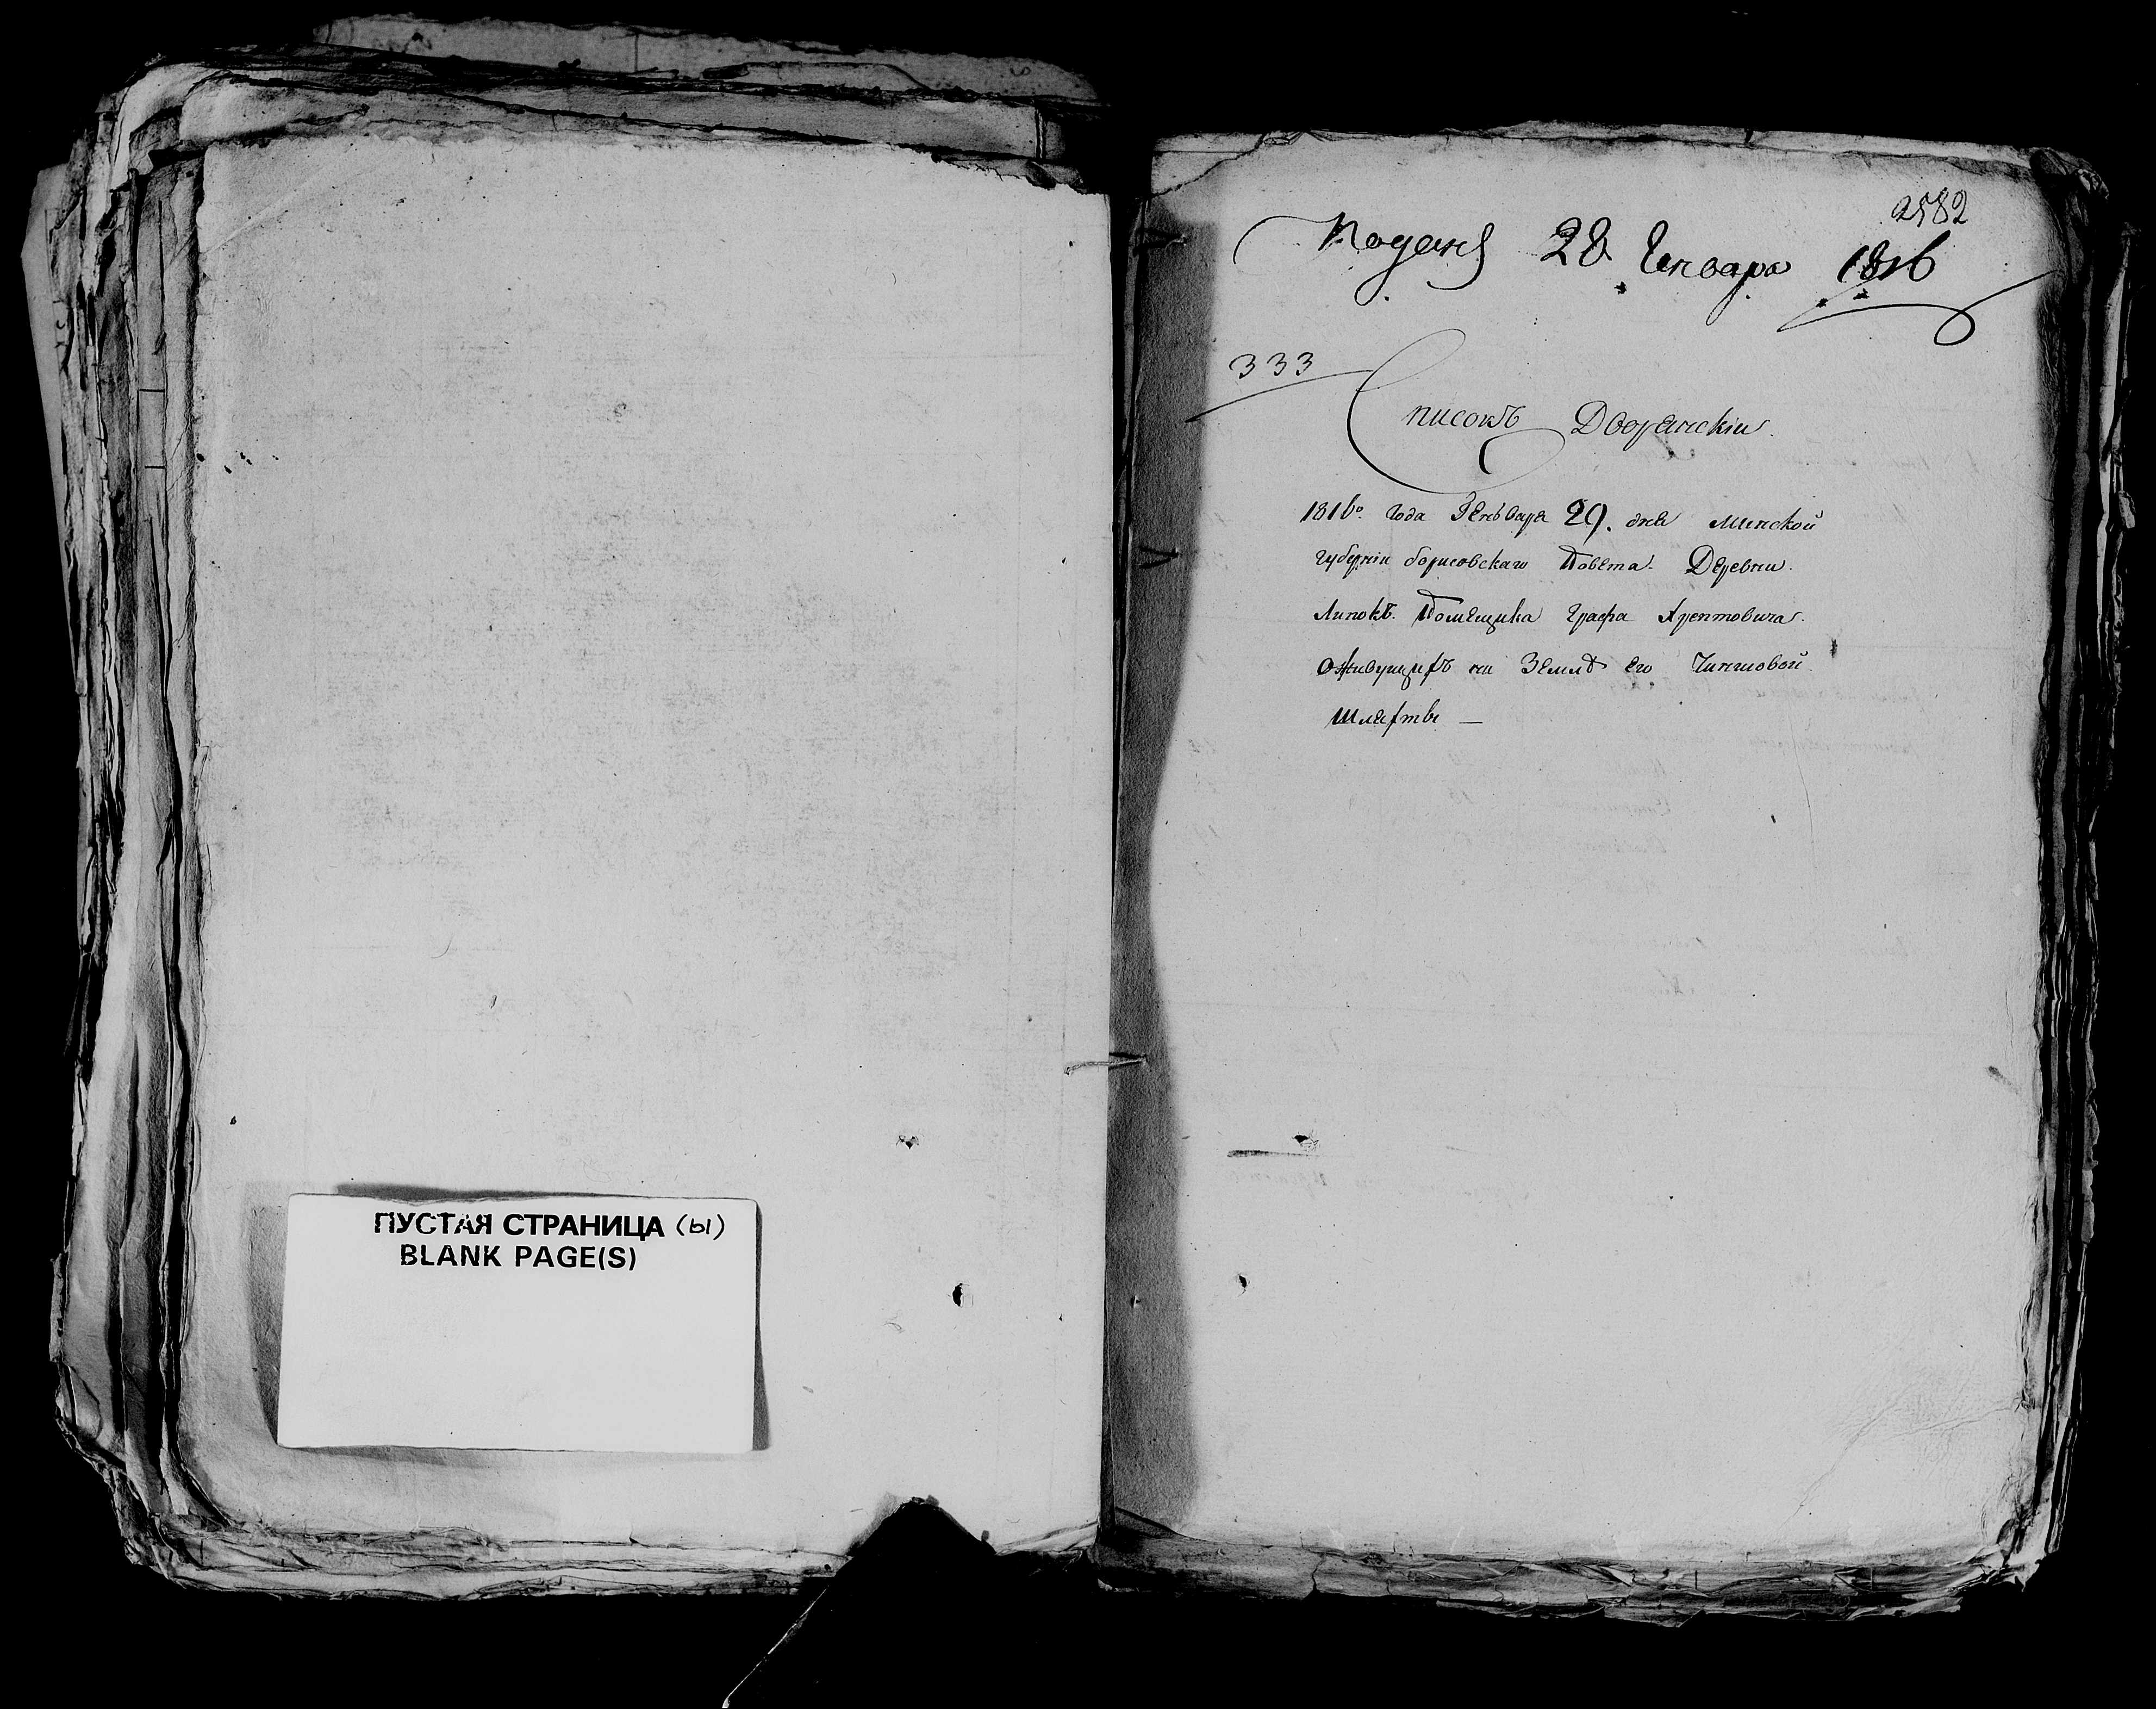 ПУСТАЯ СТРАНИЦА (ы)
BLANK PAGE(S)
2582
поданъ 28 Генваря 1816
333
Списокъ Дворянскіи
1816го года Генваря 29. дня Минской
губерніи борисовскаго Повѣта Деревни
Липокъ Помещика Графа Хрептовича
О живущихъ на Землѣ его Чиншовой
Шляхты —